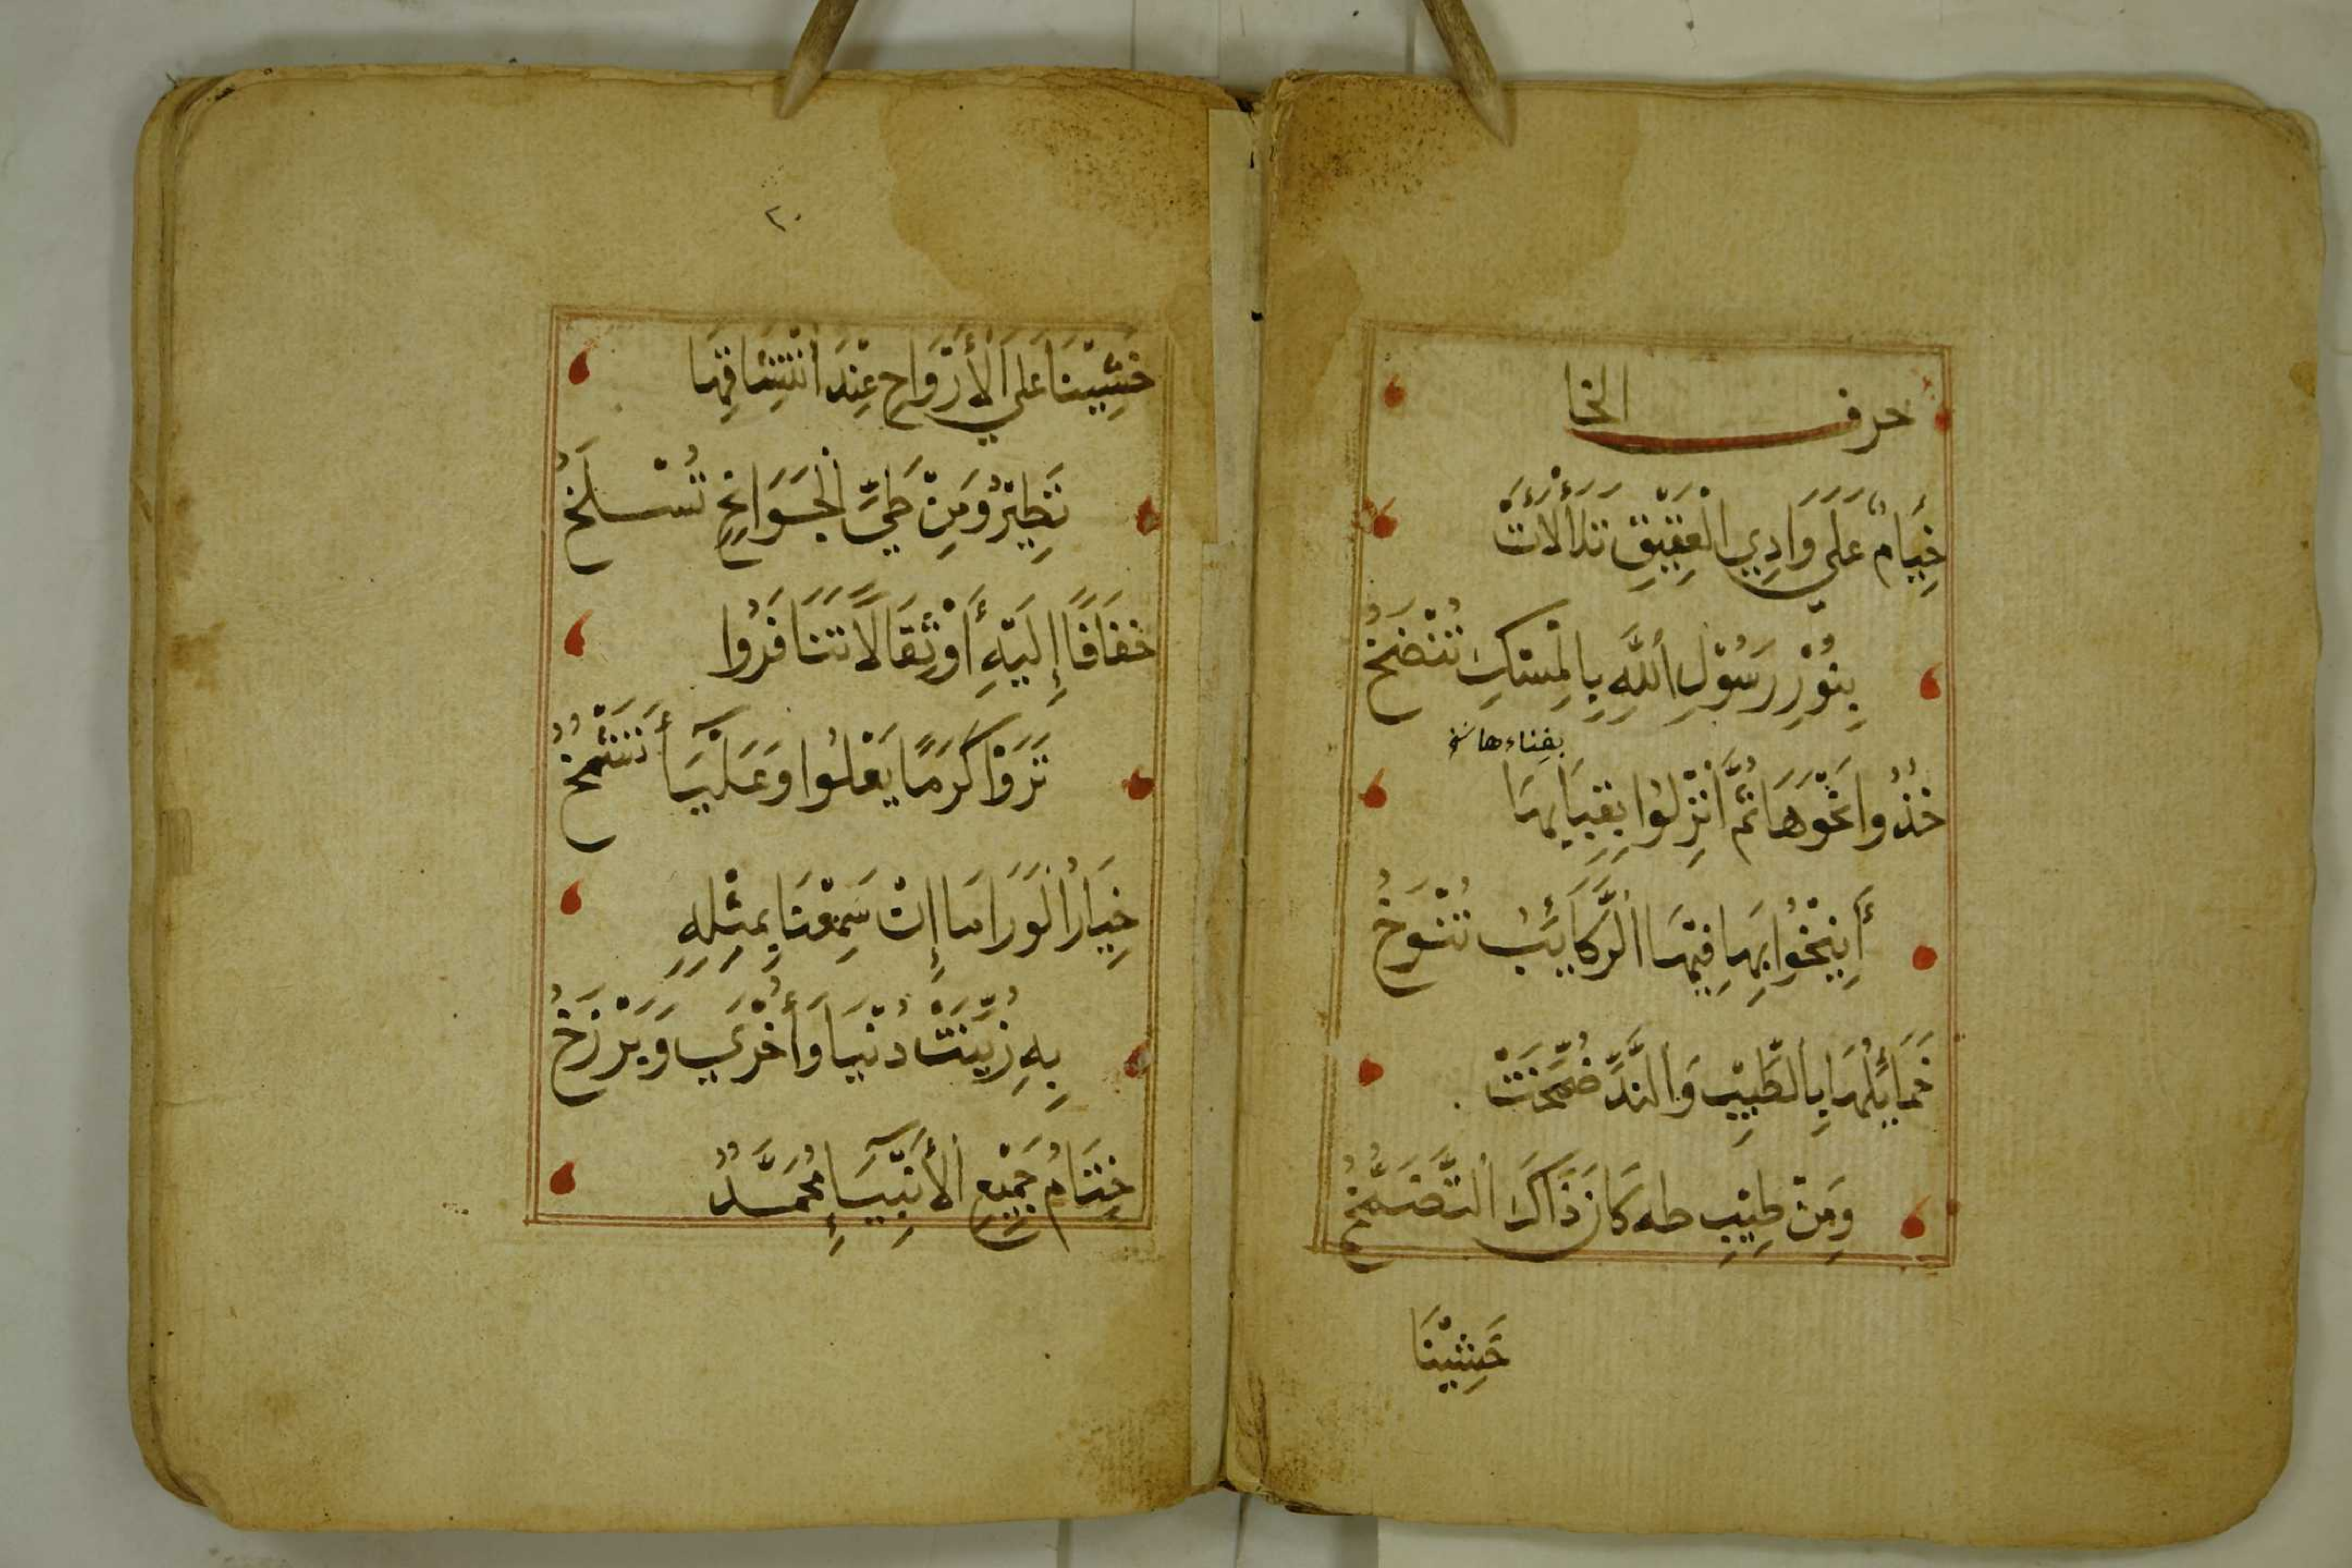 حرف الخا
خِيَامٌ عَلَى وَادِي الْعَقِيْقِ تَلَأْلَأَتْ
بِنُوْرِ رَسُوْلِ اللَّهِ بِالْمِسْكِ تُنْضَخُ
بفناءها
خُذُوا نَحْوَهَا ثُمَّ انْزِلُوا بِقِبَابِهَا
أَنِيْخُوا بِهَا فِيْهَا الرَّكَائِبُ تُنَوَّخُ
خَمَائِلُهَا بِالطِّيْبِ وَالنَّدِّ ضُمِّخَتْ
وَمِنْ طِيْبِ طه كَانَ ذَاكَ التَّضَمُّخُ
خَشِيْنَا
٢٠
خَشِيْنَا عَلَى الْأَرْوَاحِ عِنْدَ انْتِشَاقِهَا
تَطِيْرُ وَمِنْ طَيِّ الْجَوَانِحِ تُسْلَخُ
خفَافًا إِلَيْهِ أَوْ ثِقَالًا تَنَافَرُوا
تَرَوْا كَرَمًا يَعْلُوا وَعَلْيَآءَ تَشْمَخُ
خِيَارُ الْوَرَا مَا إِنْ سَمِعْنَا بِمِثْلِهِ
بِهِ زُيِّنَتْ دُنْيَا وَأُخْرَى وَبَرْزَخُ
خِتَامُ جَمِيْعِ الْأَنْبِيَآءِ مُحَمَّدٌ